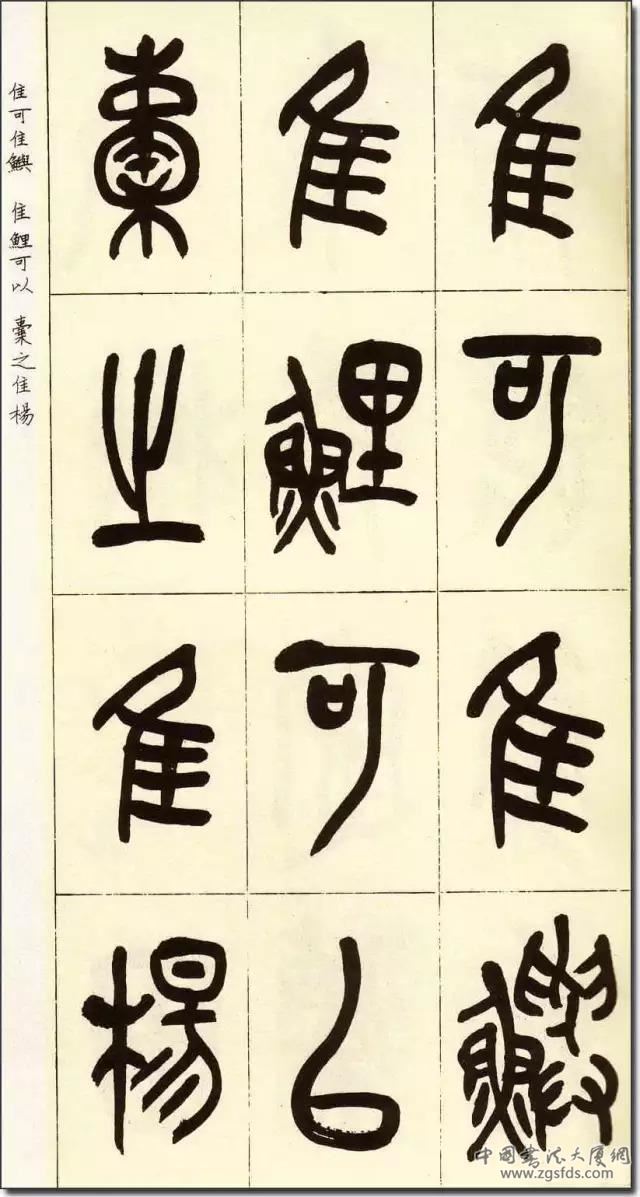 隹可隹鱮
隹鯉可㠯
橐之隹楊
隹可隹鱮 隹鯉可以 橐之隹楊
中国书法大厦網
www.zgsfds.com